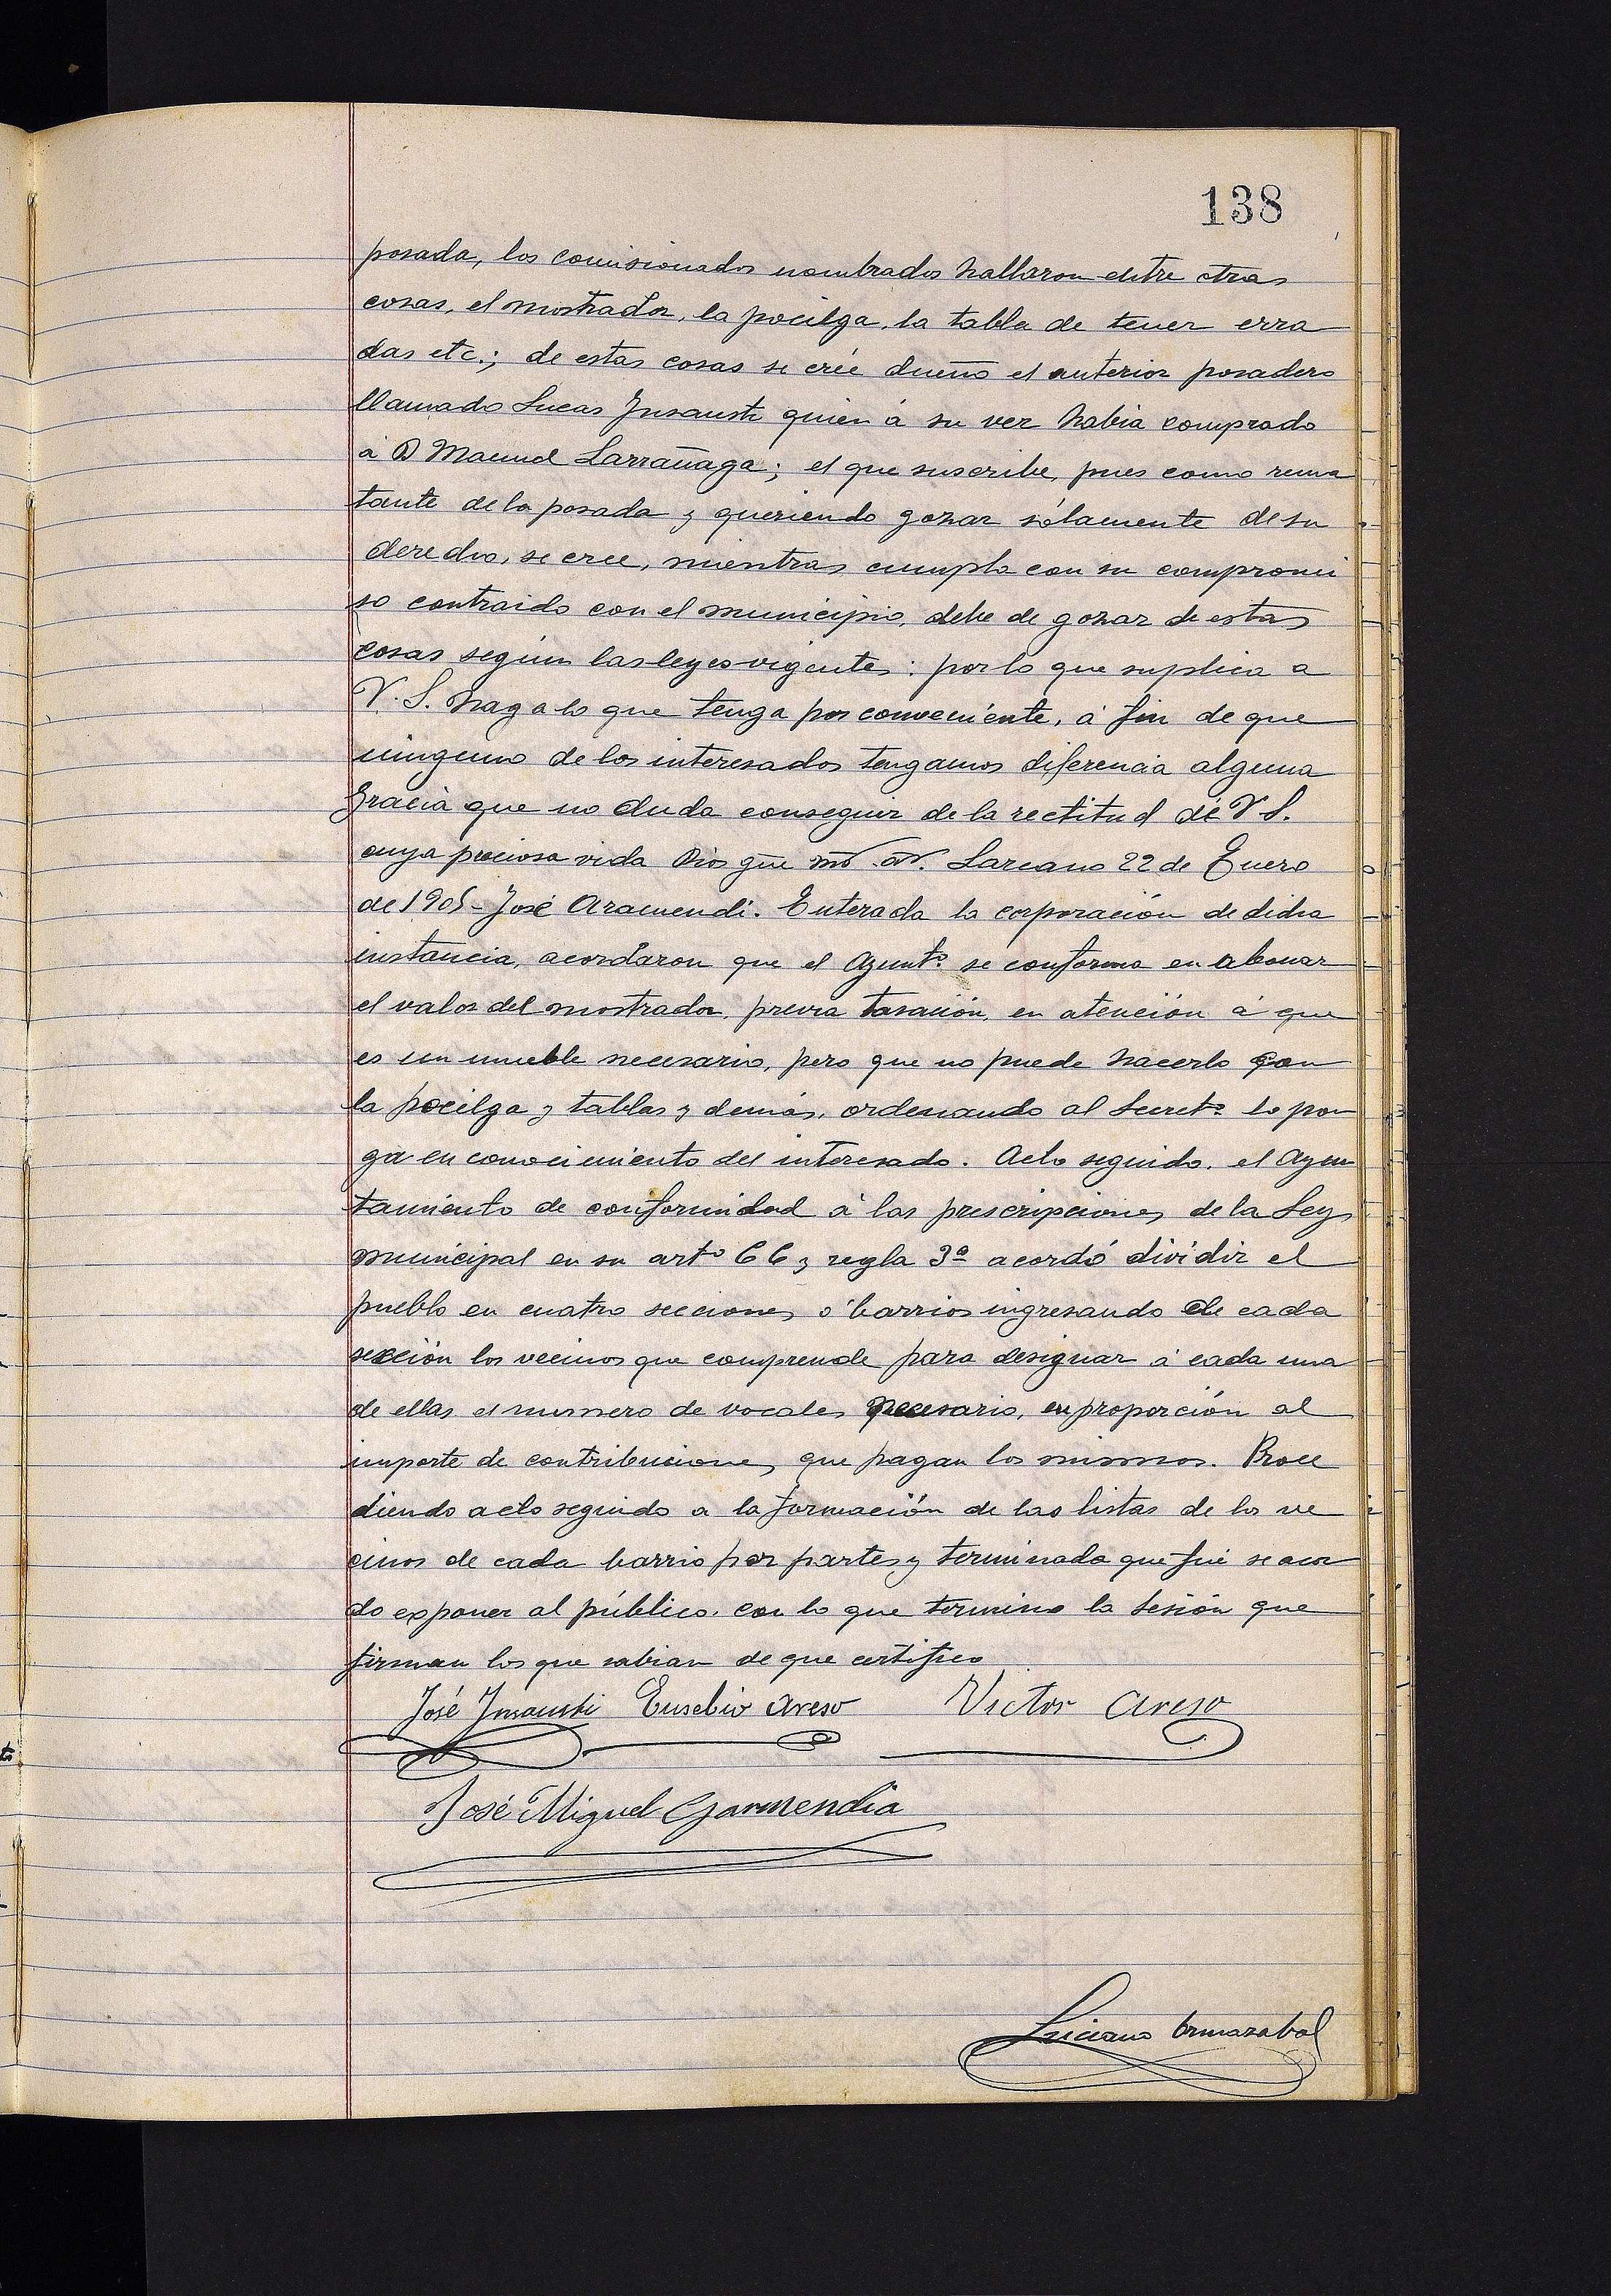 138
posada, los comisionados nombrados hallaron entre otras
cosas, el mostrador, la pocilga, la tabla de tener erra
das etc.; de estas cosas se crée dueño el anterior posadero
llamado Lucas Insausti quien á su vez habia comprado
á D Manuel Larrañaga; el que suscribe, pues como rema
tante de la posada y queriendo gozar sólamente de su
derecho, se cree, mientras cumpla con su compromi
so contraido con el municipio, debe de gozar de estas
cosas según las leyes vigentes: por lo que suplica a
V. S. haga lo que tenga por conveniente, á fin de que
ninguno de los interesados tengamos diferencia alguna
Gracia que no duda conseguir de la rectitud de V S.
cuya preciosa vida Dios gue ms as. Lazcano 22 de Enero
de 1905- José Aramendi. Enterada la corporación de dicha
instancia, acordaron que el Ayunto se conforma en abonar
el valor del mostrador, previa tasación, en atención á que
es un mueble necesario, pero que no puede hacerlo con
la pocilga y tablas y demás, ordenando al Secreto lo pon
ga en conocimiento del interesado. Acto seguido, el Ayun
tamiento de conformidad á las prescripciones de la Ley
municipal en su arto 66 y regla 3ª acordó dividir el
pueblo en cuatro secciones ó barrios ingresando de cada
sección los vecinos que comprende para designar á cada una
de ellas el numero de vocales necesario, en proporción al
importe de contribuciones que pagan los mismos. Proce
diendo acto seguido a la formación de las listas de los ve
cinos de cada barrio por partes y terminada que fué se acor
do exponer al público. con lo que termino la sesión que
firman los que sabian de que certifico
José Insausti Eusebio Areso Victor Areso
José Miguel Garmendia
Luciano Ormazabal